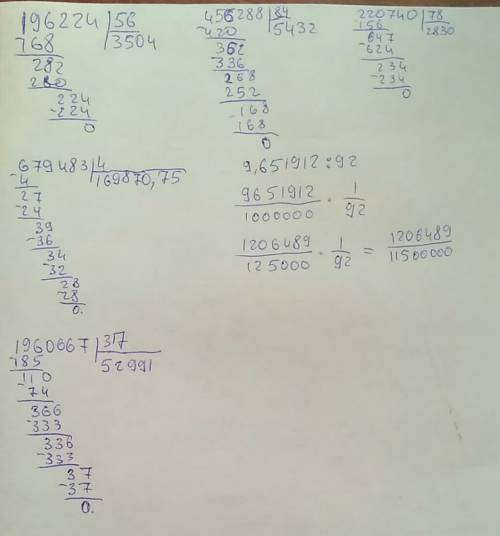 196224 | 56
168 | 3504
282
280
224
-224
0
456288 | 84
-420 | 5432
362
-336
268
252
168
168
0
220740 | 78
-156 | 2830
647
-624
234
-234
0
679483 | 4
-4 | 169870,75
27
-24
39
-36
34
-32
28
-28
0.
9,651912 : 92
9651912/1000000 · 1/92
1206489/125000 · 1/92 = 1206489/11500000
1960667 | 37
185 | 52991
110
-74
366
-333
336
-333
37
-37
0.